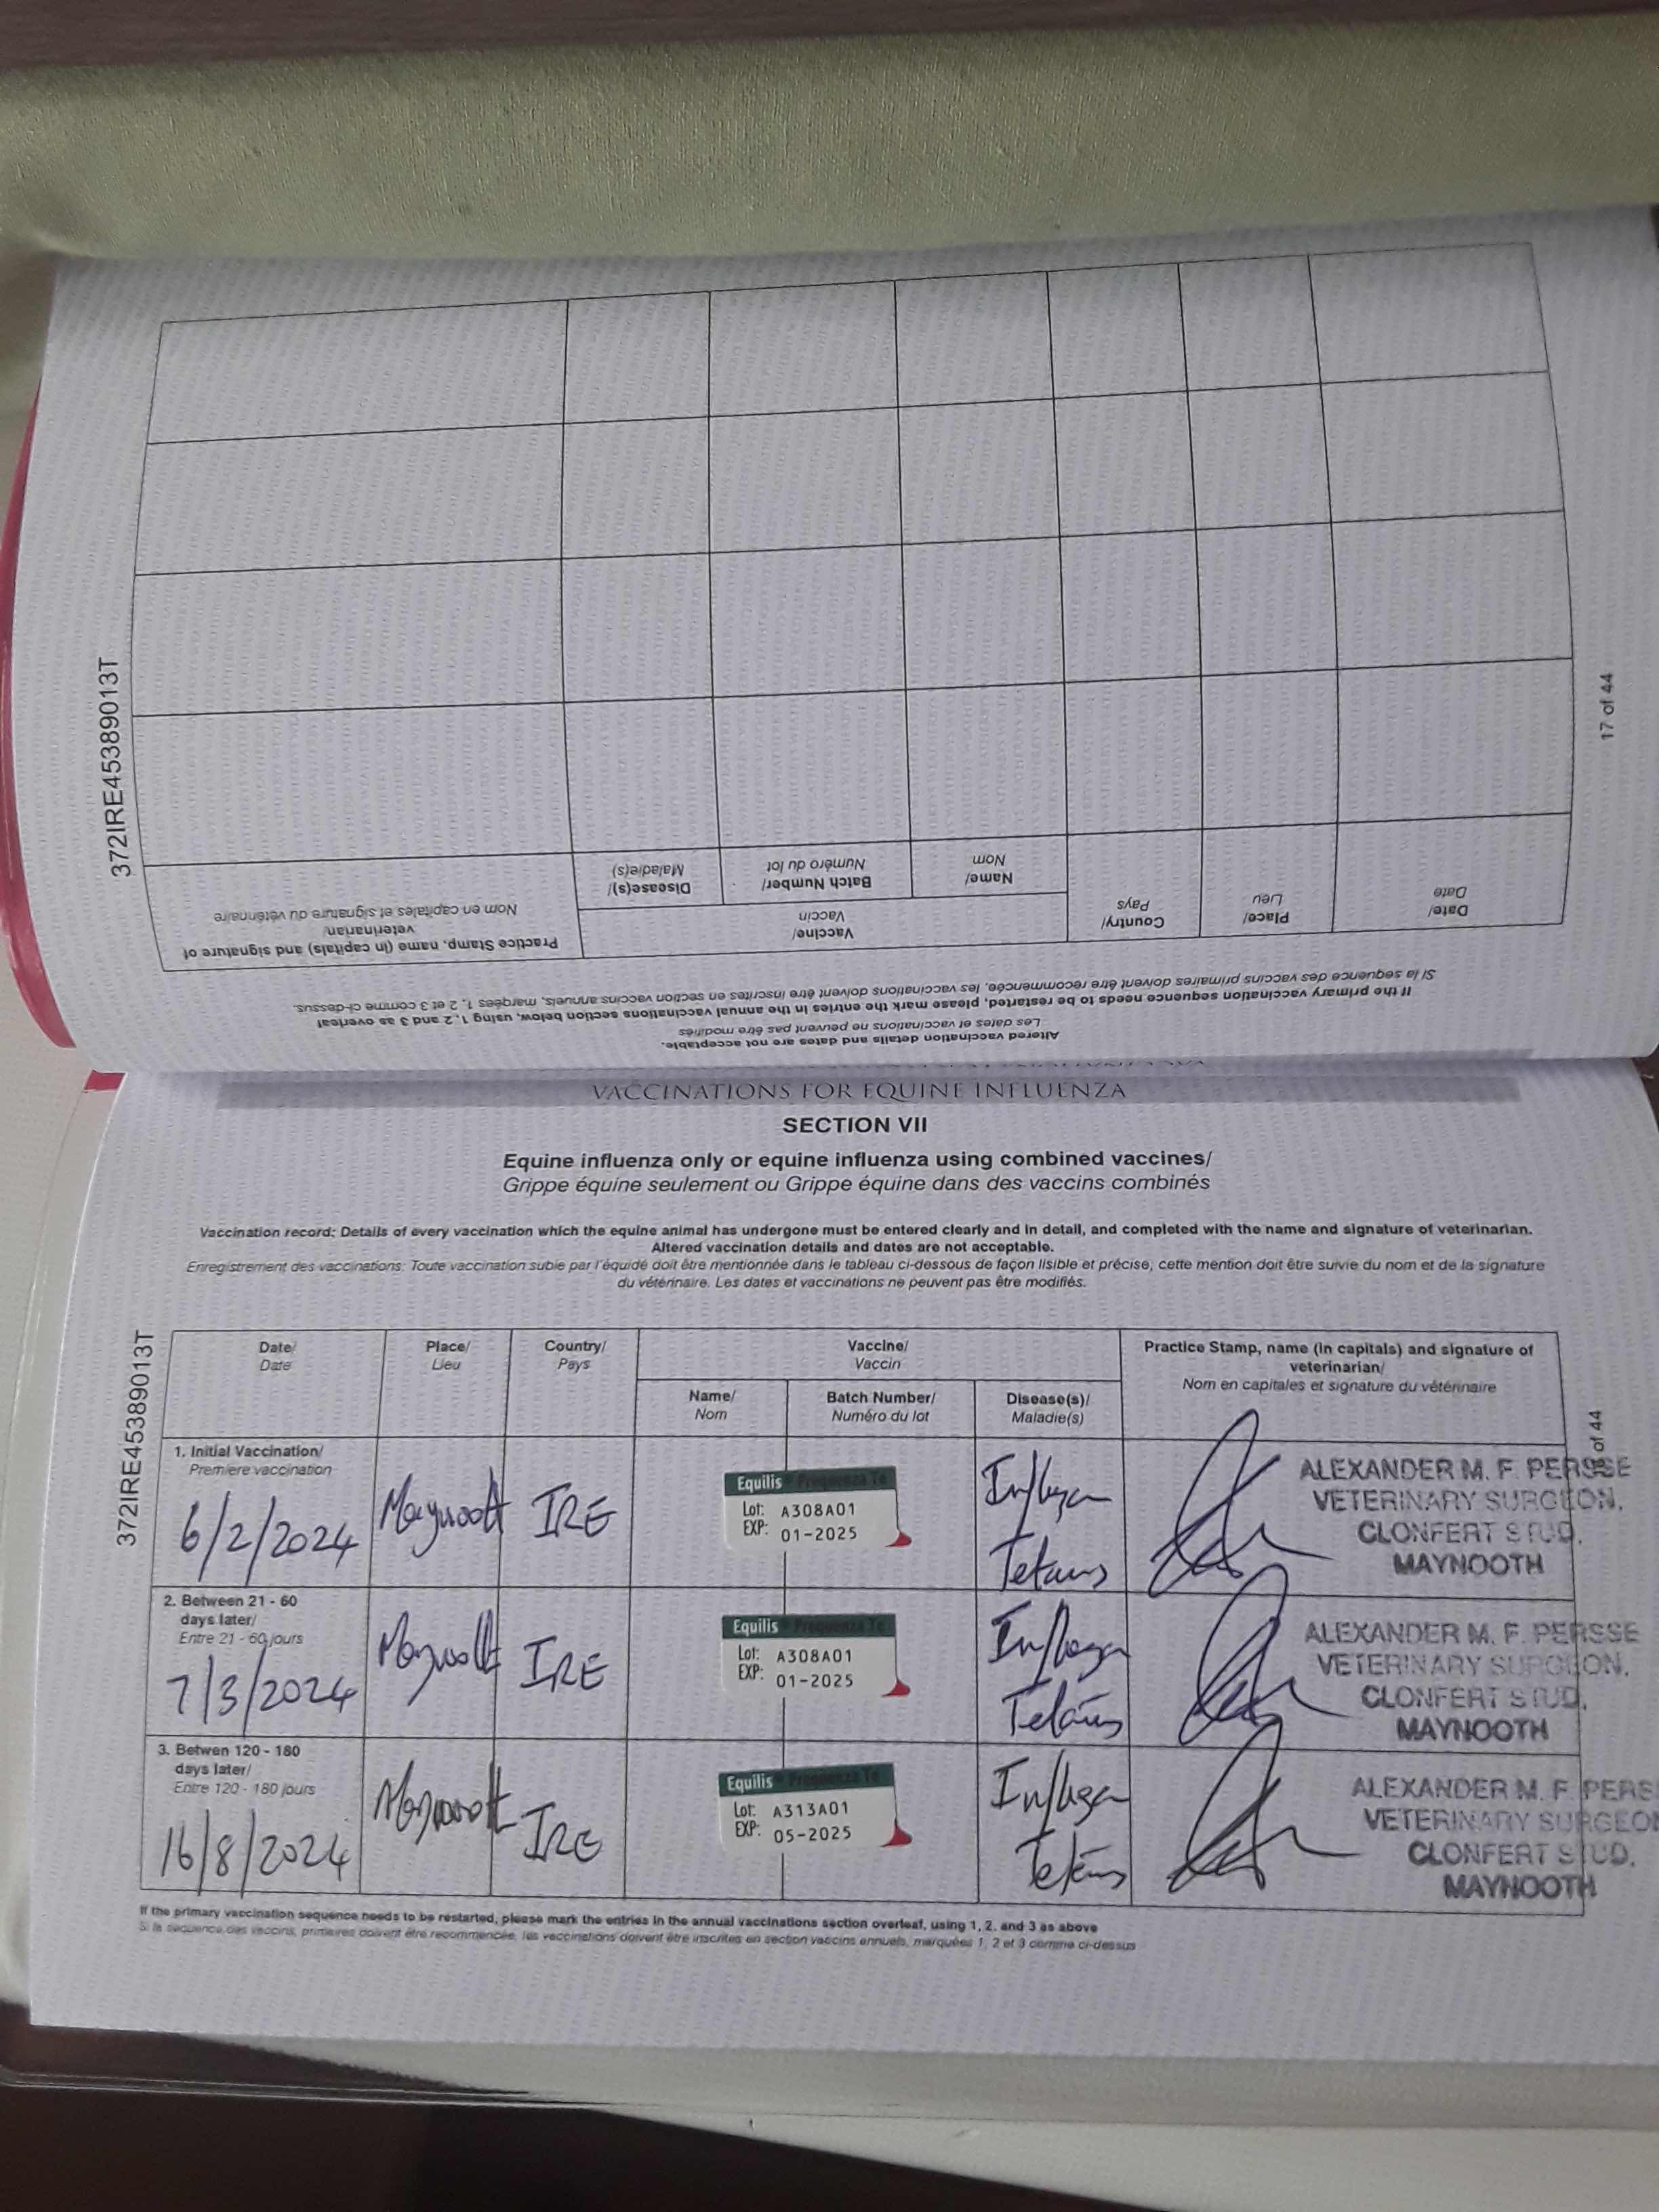 372IRE45389013T
17 of 44
Altered vaccination details and dates are not acceptable.
Les dates et vaccinations ne peuvent pas être modifiés
If the primary vaccination sequence needs to be restarted, please mark the entries in the annual vaccinations section below, using 1, 2 and 3 as overleaf
Si la sequence des vaccins primaires doivent être recommencée, les vaccinations doivent être inscrites en section vaccins annuels, marqées 1, 2 et 3 comme ci-dessus.
Date/
Date
Place/
Lieu
Country/
Pays
Vaccine/
Vaccin
Name/
Nom
Batch Number/
Numéro du lot
Disease(s)/
Maladie(s)
Practice Stamp, name (in capitals) and signature of
veterinarian/
Nom en capitales et signature du vétérinaire
VACCINATIONS FOR EQUINE INFLUENZA
SECTION VII
Equine influenza only or equine influenza using combined vaccines/
Grippe équine seulement ou Grippe équine dans des vaccins combinés
Vaccination record: Details of every vaccination which the equine animal has undergone must be entered clearly and in detail, and completed with the name and signature of veterinarian.
Altered vaccination details and dates are not acceptable.
Enregistrement des vaccinations: Toute vaccination subie par l'équidé doit être mentionnée dans le tableau ci-dessous de façon lisible et précise, cette mention doit être suivie du nom et de la signature
du vétérinaire. Les dates et vaccinations ne peuvent pas être modifiés.
372IRE45389013T
of 44
Date/
Date
Place/
Lieu
Country/
Pays
Vaccine/
Vaccin
Name/
Nom
Batch Number/
Numéro du lot
Disease(s)/
Maladie(s)
Practice Stamp, name (in capitals) and signature of
veterinarian/
Nom en capitales et signature du vétérinaire
1. Initial Vaccination/
Premiere vaccination
6/2/2024
Maynooth
IRE
Equilis Prequenza Te
Lot: A308A01
EXP: 01-2025
Influenza
Tetanus
ALEXANDER M. F. PERSSE
VETERINARY SURGEON,
CLONFERT STUD,
MAYNOOTH
2. Between 21 - 60
days later/
Entre 21 - 60 jours
7/3/2024
Maynooth
IRE
Equilis Prequenza Te
Lot: A308A01
EXP: 01-2025
Influenza
Tetanus
ALEXANDER M. F. PERSSE
VETERINARY SURGEON,
CLONFERT STUD,
MAYNOOTH
3. Betwen 120 - 180
days later/
Entre 120 - 180 jours
16/8/2024
Maynooth
IRE
Equilis Prequenza Te
Lot: A313A01
EXP: 05-2025
Influenza
Tetanus
ALEXANDER M. F. PERS
VETERINARY SURGEO
CLONFERT STUD,
MAYNOOTH
If the primary vaccination sequence needs to be restarted, please mark the entries in the annual vaccinations section overleaf, using 1, 2, and 3 as above
Si la sequence des vaccins, primaires doivent être recommencée, les vaccinations doivent être inscrites en section vaccins annuels, marquées 1, 2 et 3 comme ci-dessus